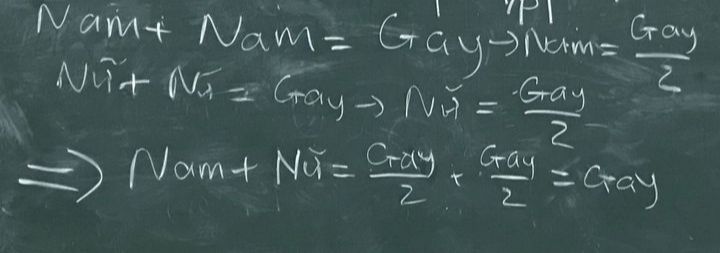 Nam + Nam = Gay → Nam = Gay/2
Nữ + Nữ = Gay → Nữ = Gay/2
⇒ Nam + Nữ = Gay/2 + Gay/2 = Gay